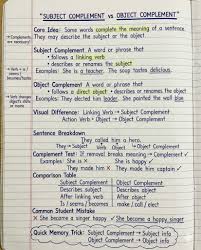 "SUBJECT COMPLEMENT" vs OBJECT COMPLEMENT"
Core Idea: Some words complete the meaning of a sentence.
They may describe the subject or the object
→ Complements
are necessary!
Subject Complement A word or phrase that
• follows a linking verb
• describes or renames the subject
→ Verb = is /
seems /
becomes/tastes
Examples: She is a teacher. The soup tastes delicious.
Object Complement A word or phrase that
• follows a direct object • describes or renames the object
→ Verb changes
object's state
or name
Examples: They elected him leader. She painted the wall blue.
Visual Difference: Linking Verb → Subject Complement
Action Verb → Object → Object Complement
Sentence Breakdown
They called him a hero.
They → Subject Verb Object → Object Complement
Complement Test: If removed breaks meaning → Complement ✓
Examples: She is ✗ She is happy ✓
They made him ✗ They made him captain ✓
Comparison Table
Subject Complement Object Complement
Describes subject Describes object
After linking verb After object
Is / seems / becomes make / call / elect
Common Student Mistake
✗ She became a singer happy ✓ She became a happy singer
Quick Memory Trick: Subject Complement → Subject info
Object Complement → Object info